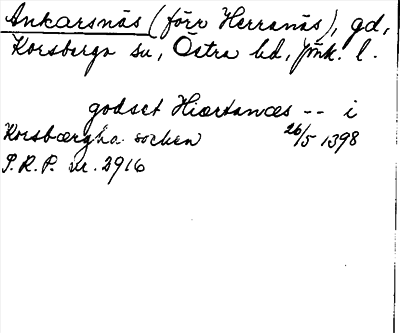 Ankarsnäs (förr Herranäs), gd,
Korsberga sn, Östra hd, Jönk. l.
godset Hiærtanæs -- i
Korsbærgha socken 26/5 1398
S.R.P. nr. 2916